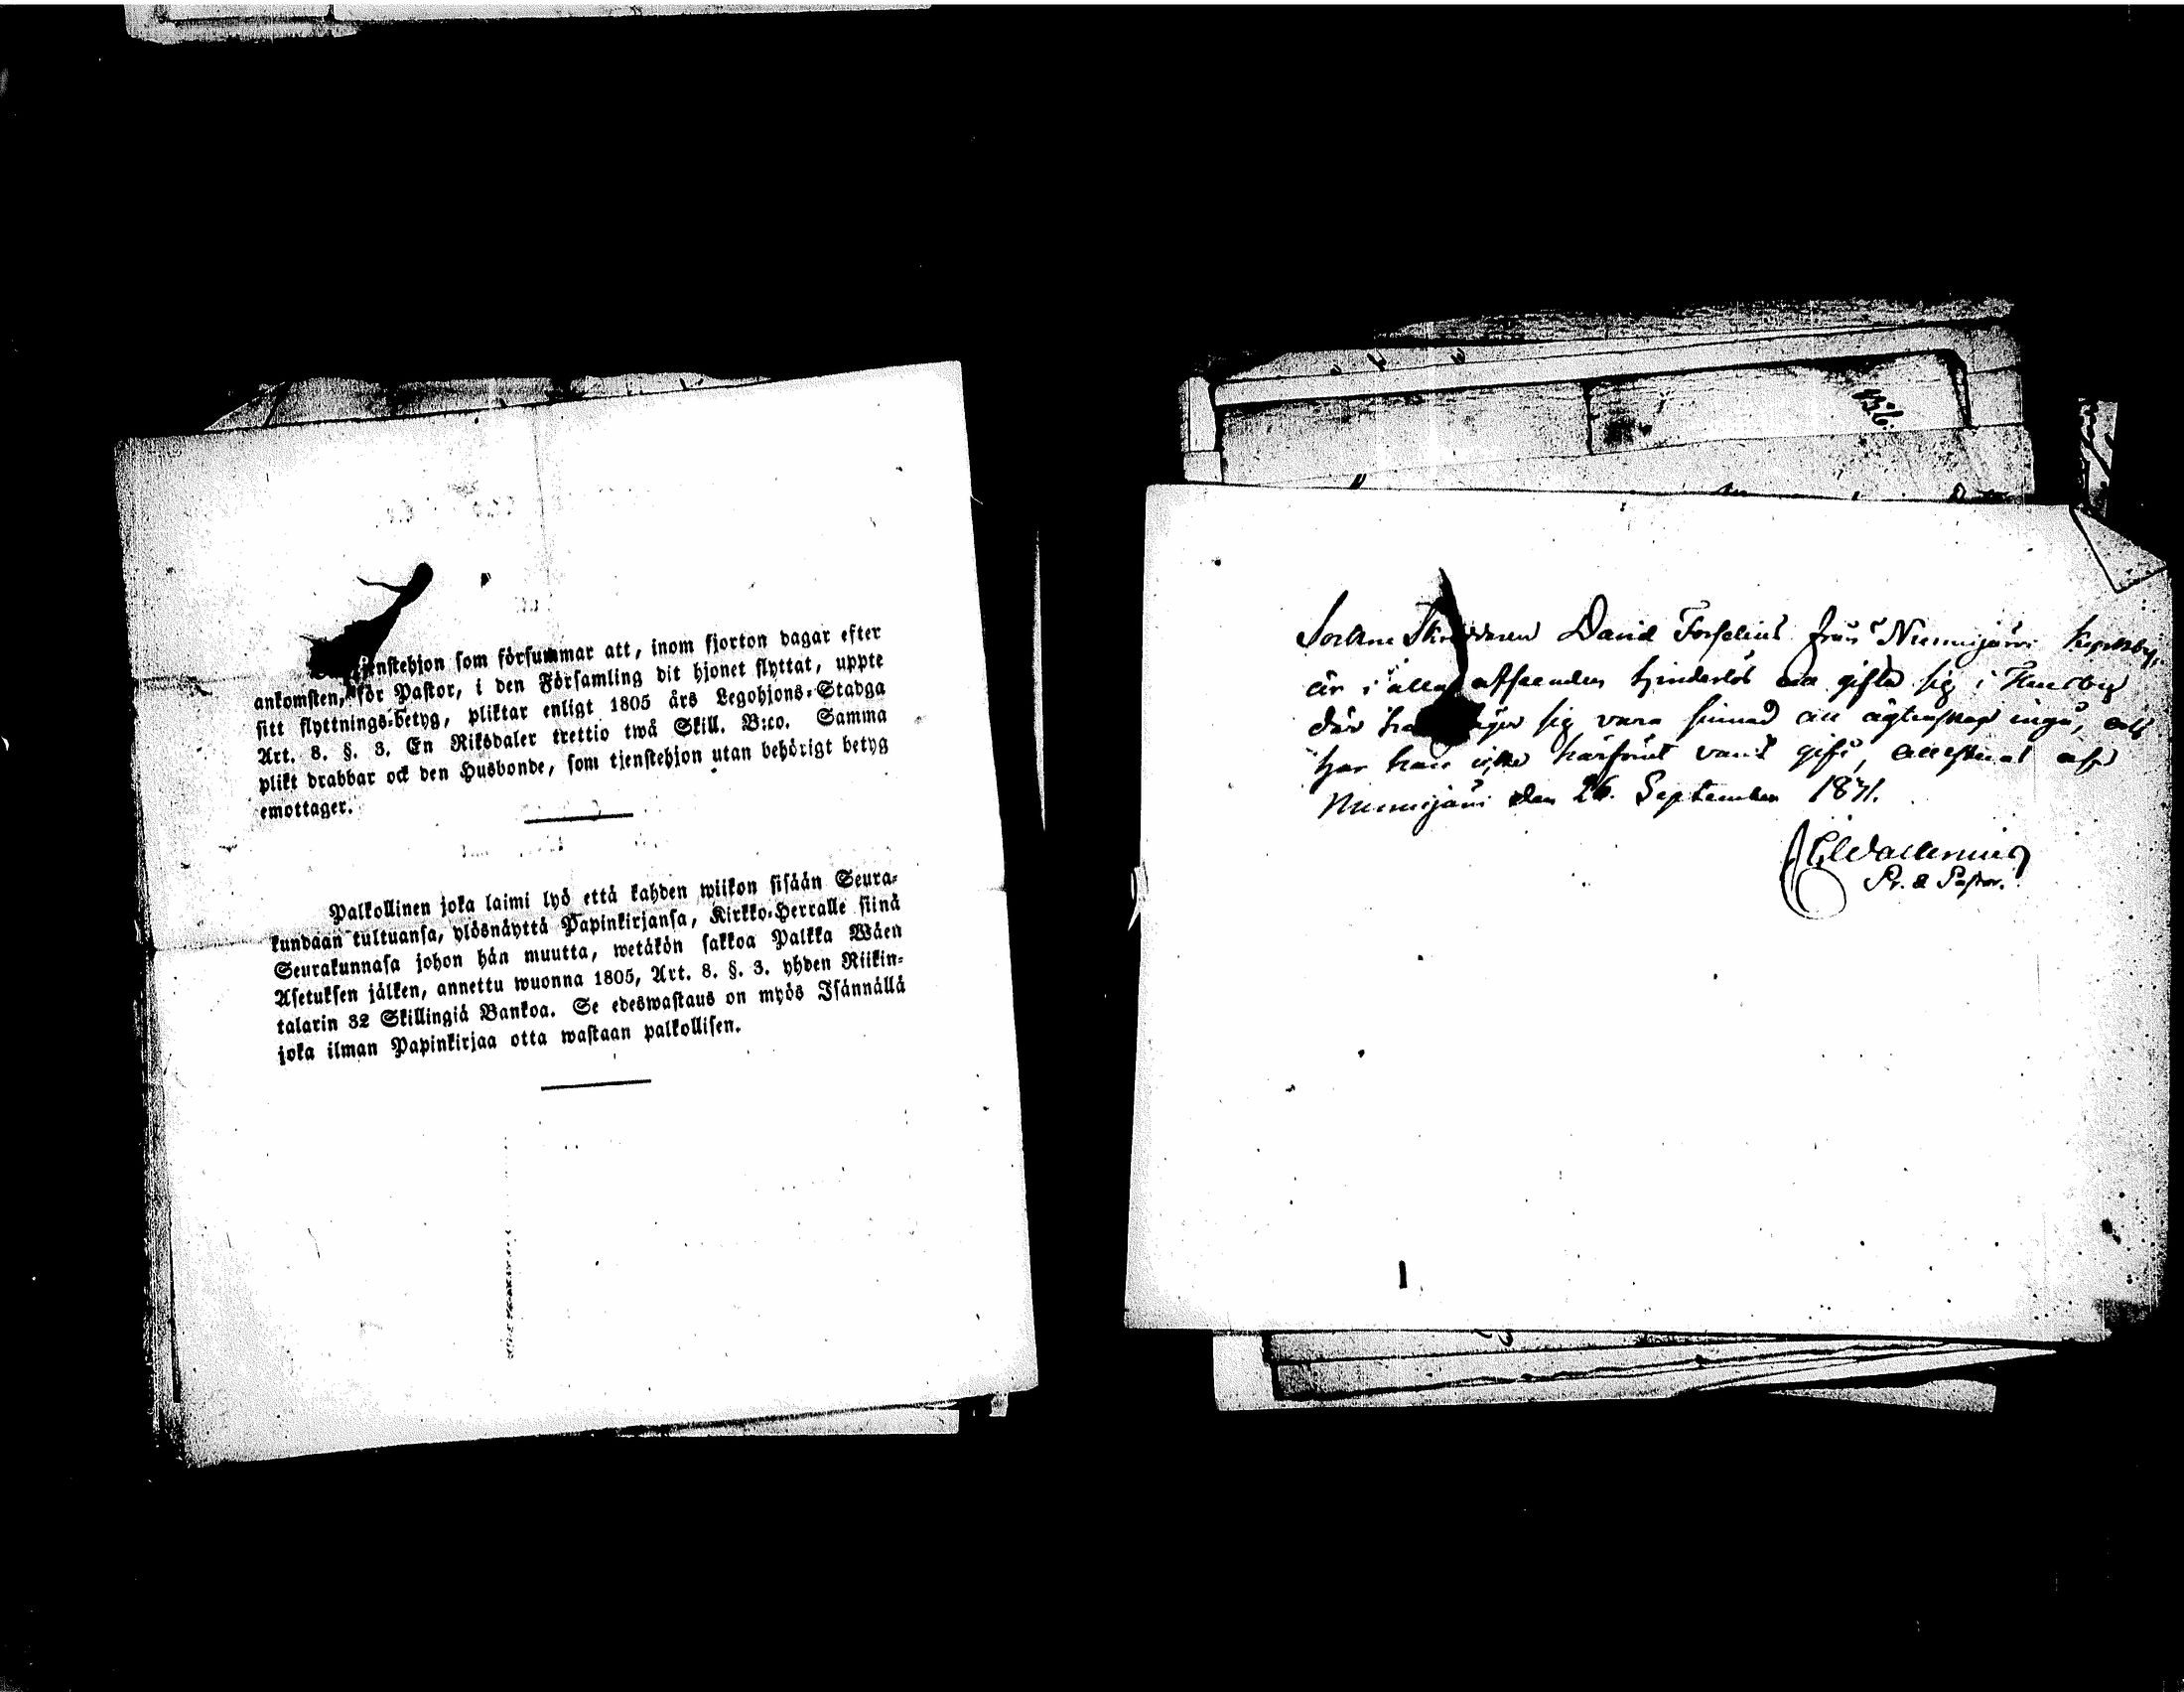 tjenstehjon som försummar att, inom fjorton dagar efter
ankomsten, för Pastor, i den Församling dit hjonet flyttat, uppte
sitt flyttnings-betyg, pliktar enligt 1805 års Legohjons-Stadga
Art. 8. §. 3. En Riksdaler trettio twå Skill. B:co. Samma
plikt drabbar ock den Husbonde, som tjenstehjon utan behörigt betyg
emottager.
Palkollinen joka laimi lyö että kahden wiikon sisään Seura-
kundaan tultuansa, ylösnäyttä Papinkirjansa, Kirkko-Herralle siinä
Seurakunnasa johon hän muutta, wetäkön sakkoa Palkka Wäen
Asetuksen jälken, annettu wuonna 1805, Art. 8. §. 3. yhden Riikin-
talarin 32 Skillingiä Bankoa. Se edeswastaus on myös Isännällä
joka ilman Papinkirjaa otta wastaan palkollisen.
Sockne Skräddaren David Forselius från Nummijärvi
är i alla afseenden hinderlös att gifta sig i Thusby
där han säger sig vara sinnad att ägtenskap ingå, och
har han icke härförut varit gift, attesteras af
Nummijärvi den 26. September 1871.
Pr. & Pastor.